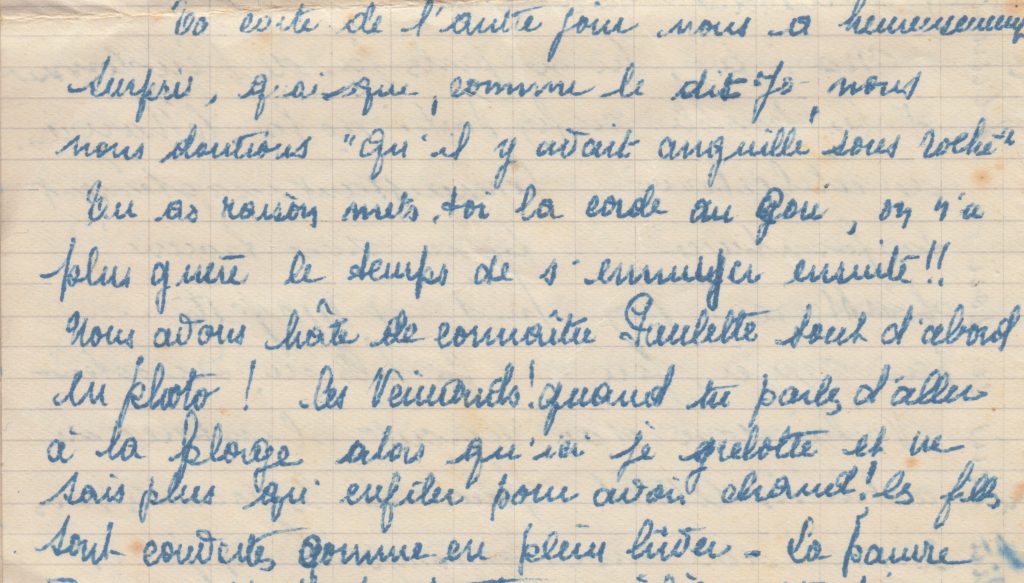 Ta carte de l'autre jour nous a heureusement
surpris, quoique, comme le dit Jo, nous
nous doutions "Qu'il y avait anguille sous roche"
Tu as raison mets-toi la corde au cou, on n'a
plus guère le temps de s'ennuyer ensuite!!
Nous avons hâte de connaître Paulette tout d'abord
en photo ! les quand tu parles d'aller
à la plage alors qu'ici je grelotte et ne
sais plus qu'enfiler pour avoir chaud! les filles
sont couvertes comme en plein hiver - La pauvre